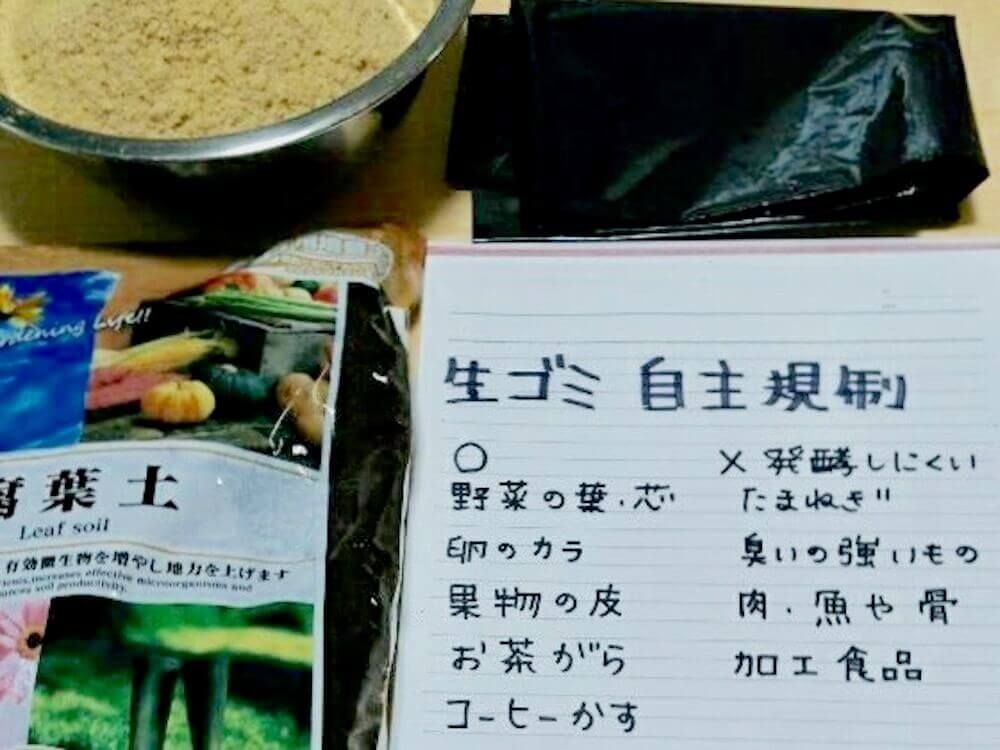 Life!!
葉土
Leaf soil
有効微生物を増やし地力を上げます
increases effective microorganisms and
soil productivity.
生ゴミ 自主規制
○
野菜の葉・芯
卵のカラ
果物の皮
お茶がら
コーヒーかす
× 発酵しにくい
たまねぎ
臭いの強いもの
肉・魚や骨
加工食品